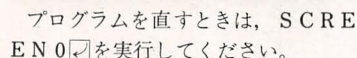 プログラムを直すときは，ＳＣＲＥ
ＥＮ０↵を実行してください。